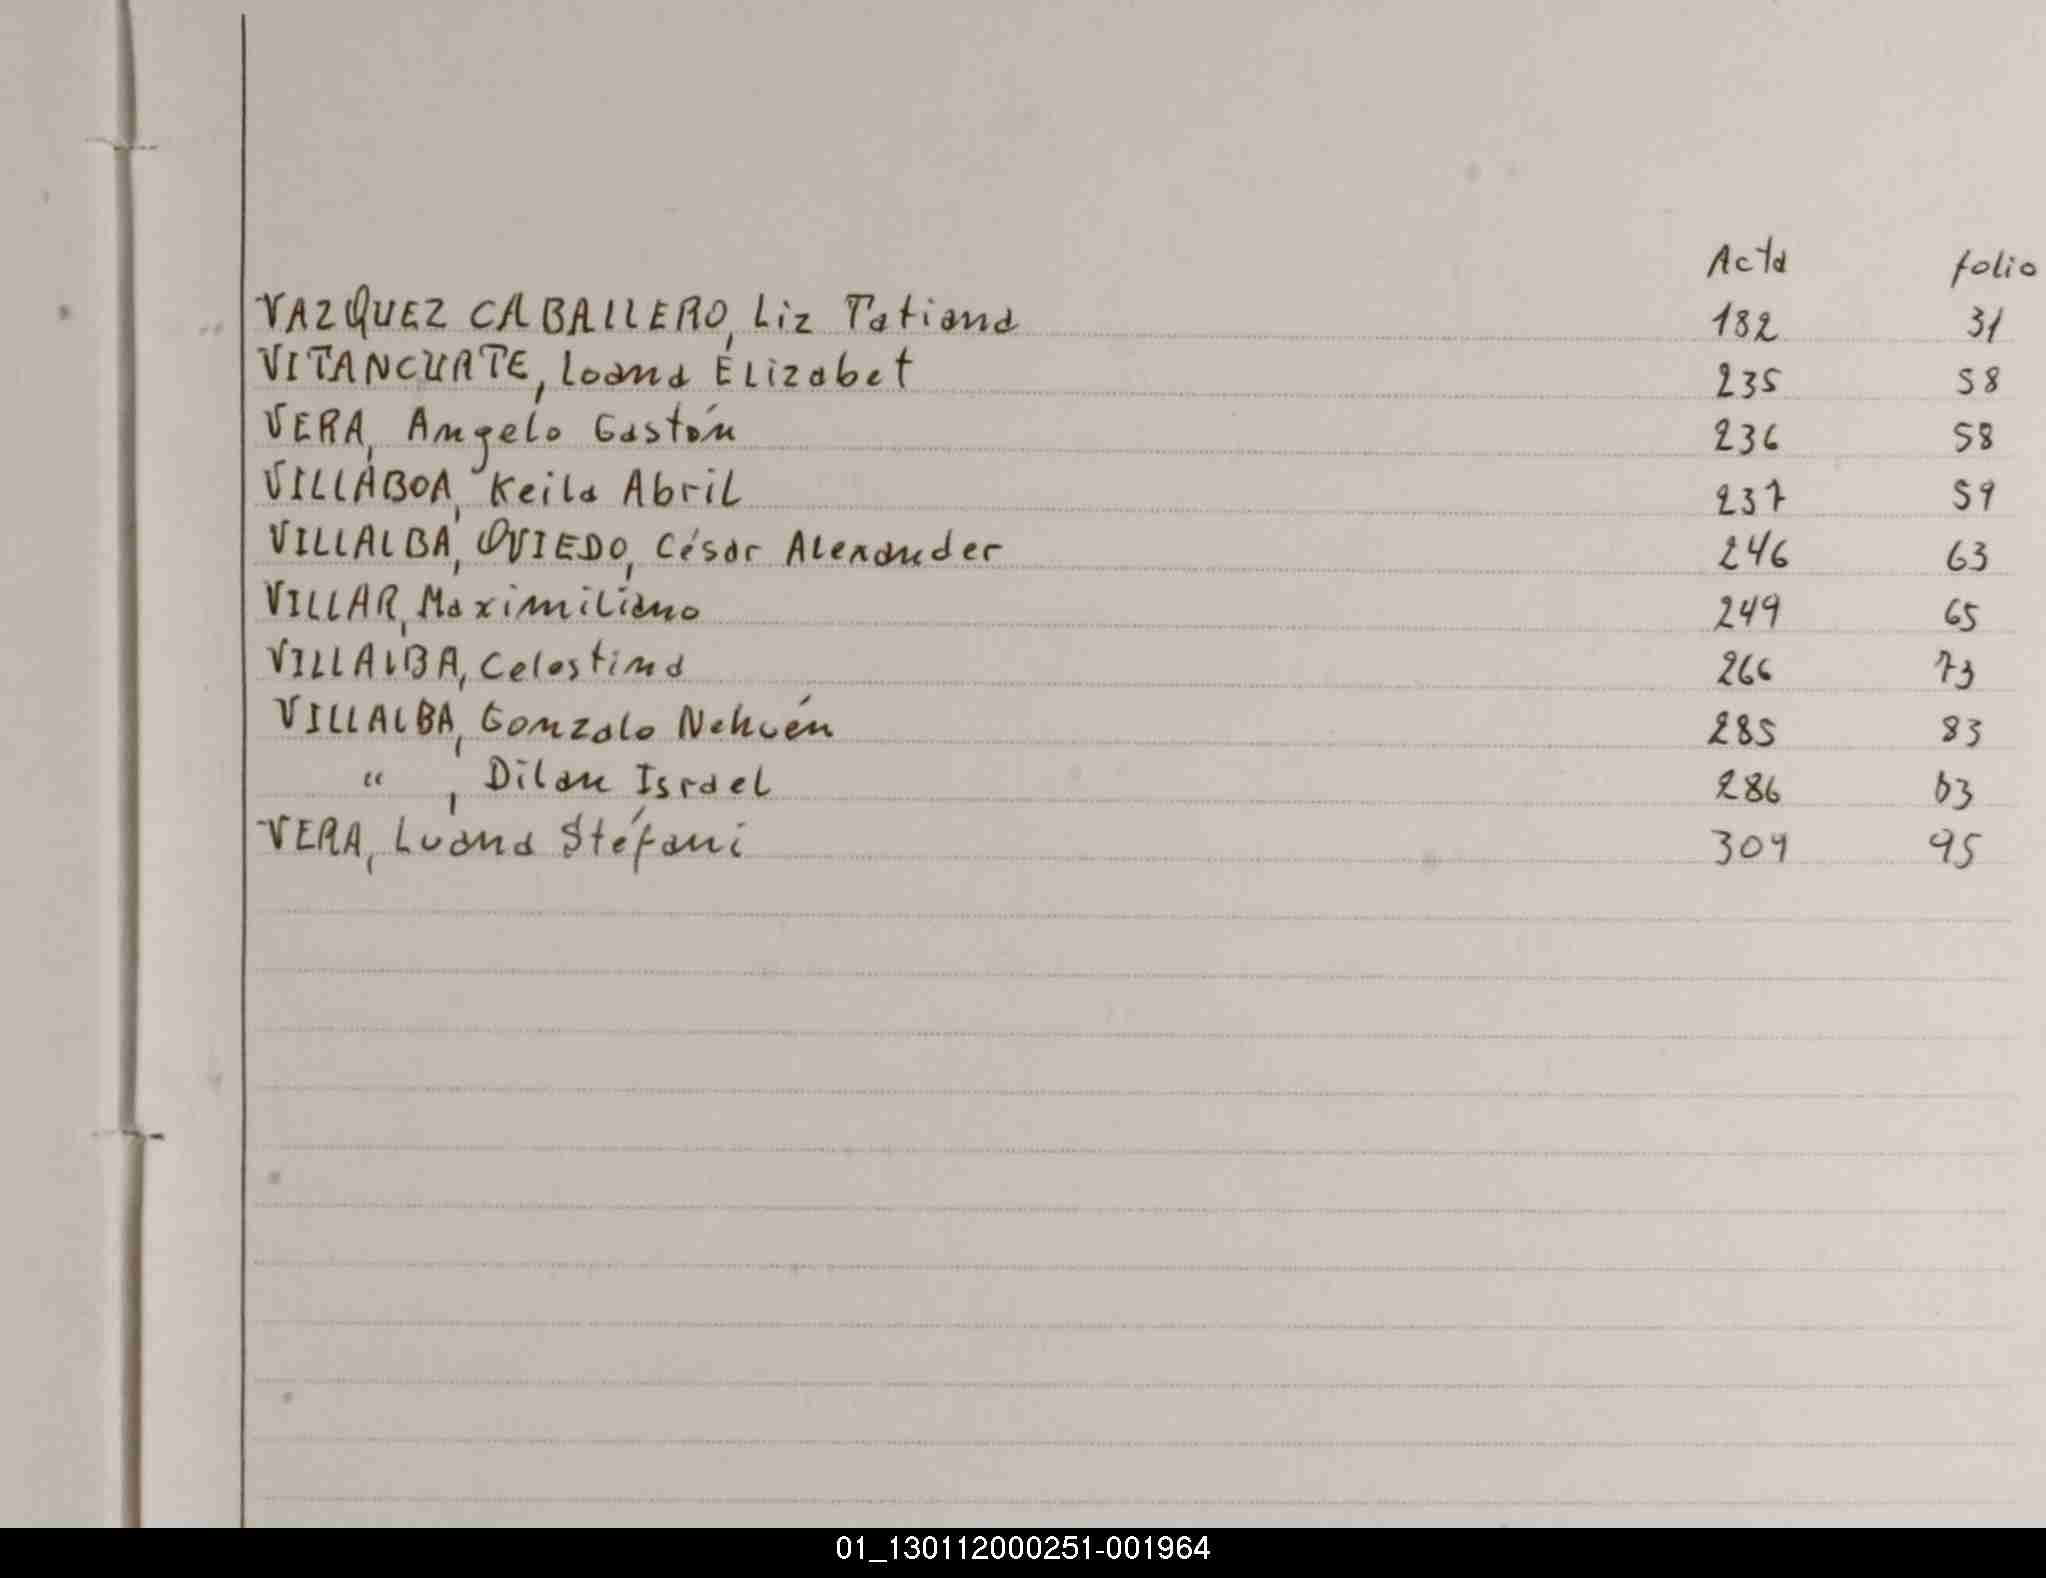 Acta folio
VAZQUEZ CABALLERO, Liz Tatiana 182 31
VITANCURTE, Loana Elizabet 235 58
VERA, Angelo Gastón 236 58
VILLABOA, Keila Abril 237 59
VILLALBA, OVIEDO, César Alexander 246 63
VILLAR, Maximiliano 249 65
VILLALBA, Celestina 266 73
VILLALBA, Gonzalo Nehuén 285 83
" , Dilan Israel 286 83
VERA, Luana Stéfani 309 95
01_130112000251-001964